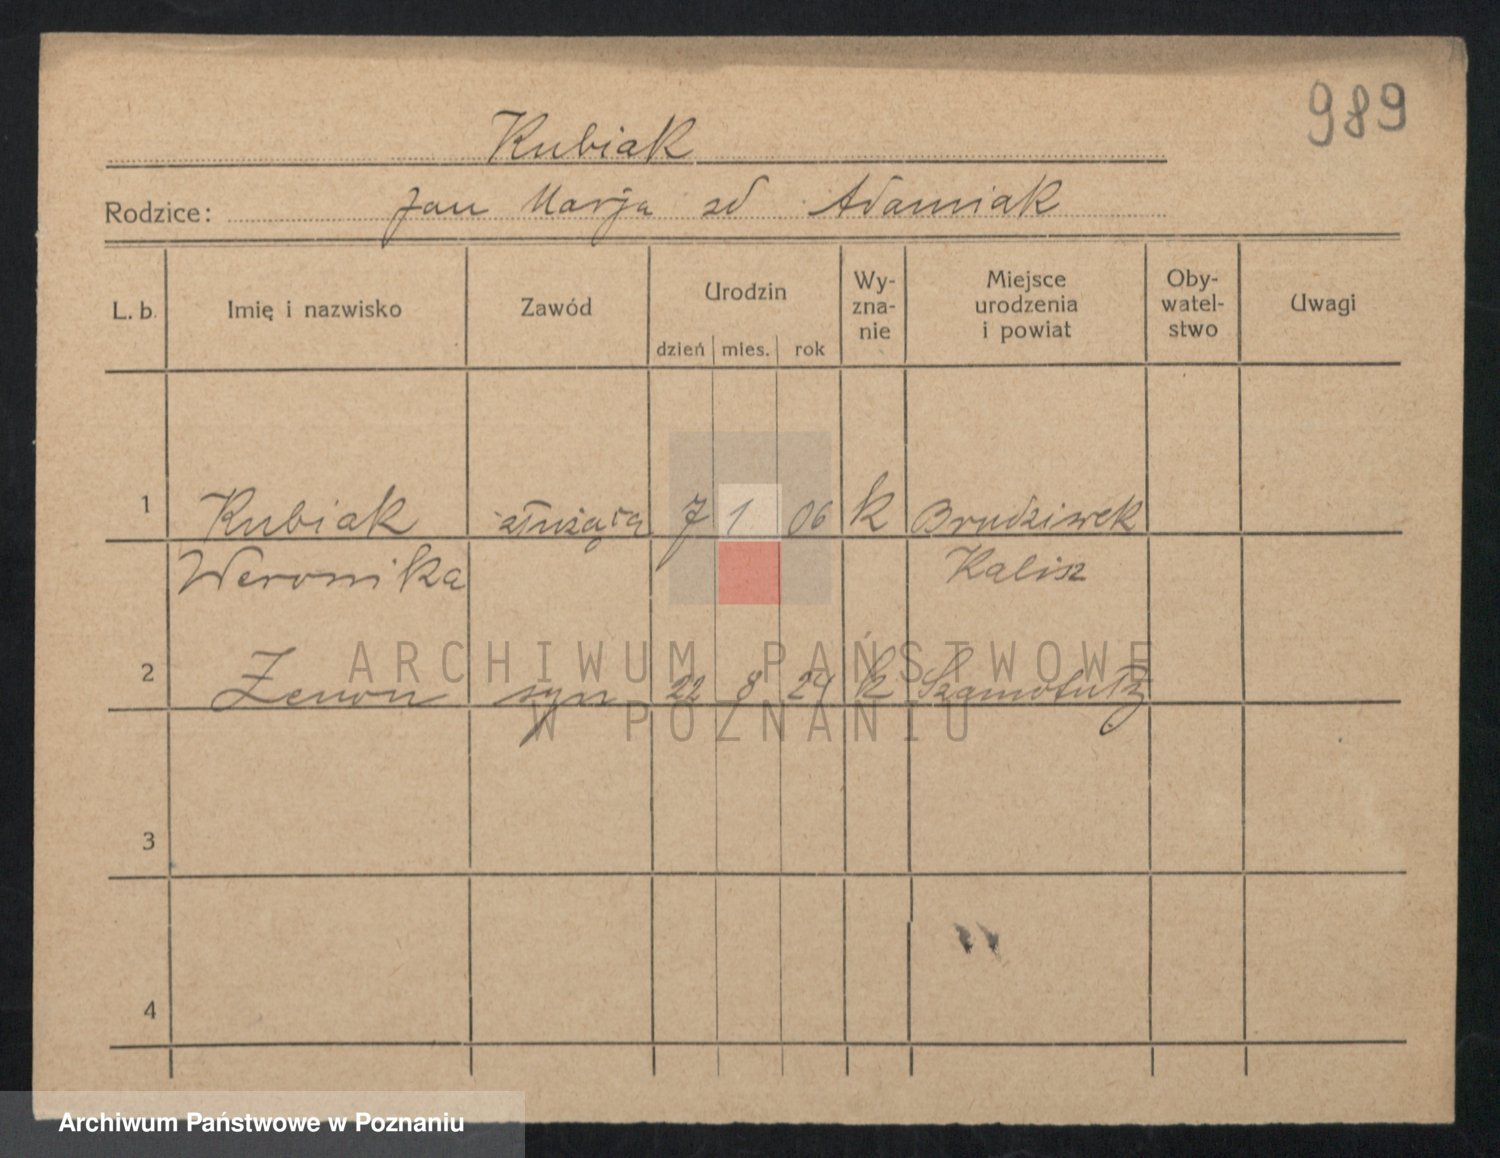 989
Kubiak
Rodzice: Jan Marja zd Adamiak
L. b. Imię i nazwisko Zawód Urodzin dzień mies. rok Wy-zna-nie Miejsce urodzenia i powiat Oby-watel-stwo Uwagi
1 Kubiak służąca 7 1 06 k Brudziwek
Weronika Kalisz
2 Zenon syn 22 8 24 k Szamotuły
3
4
ARCHIWUM PAŃSTWOWE
W POZNANIU
Archiwum Państwowe w Poznaniu